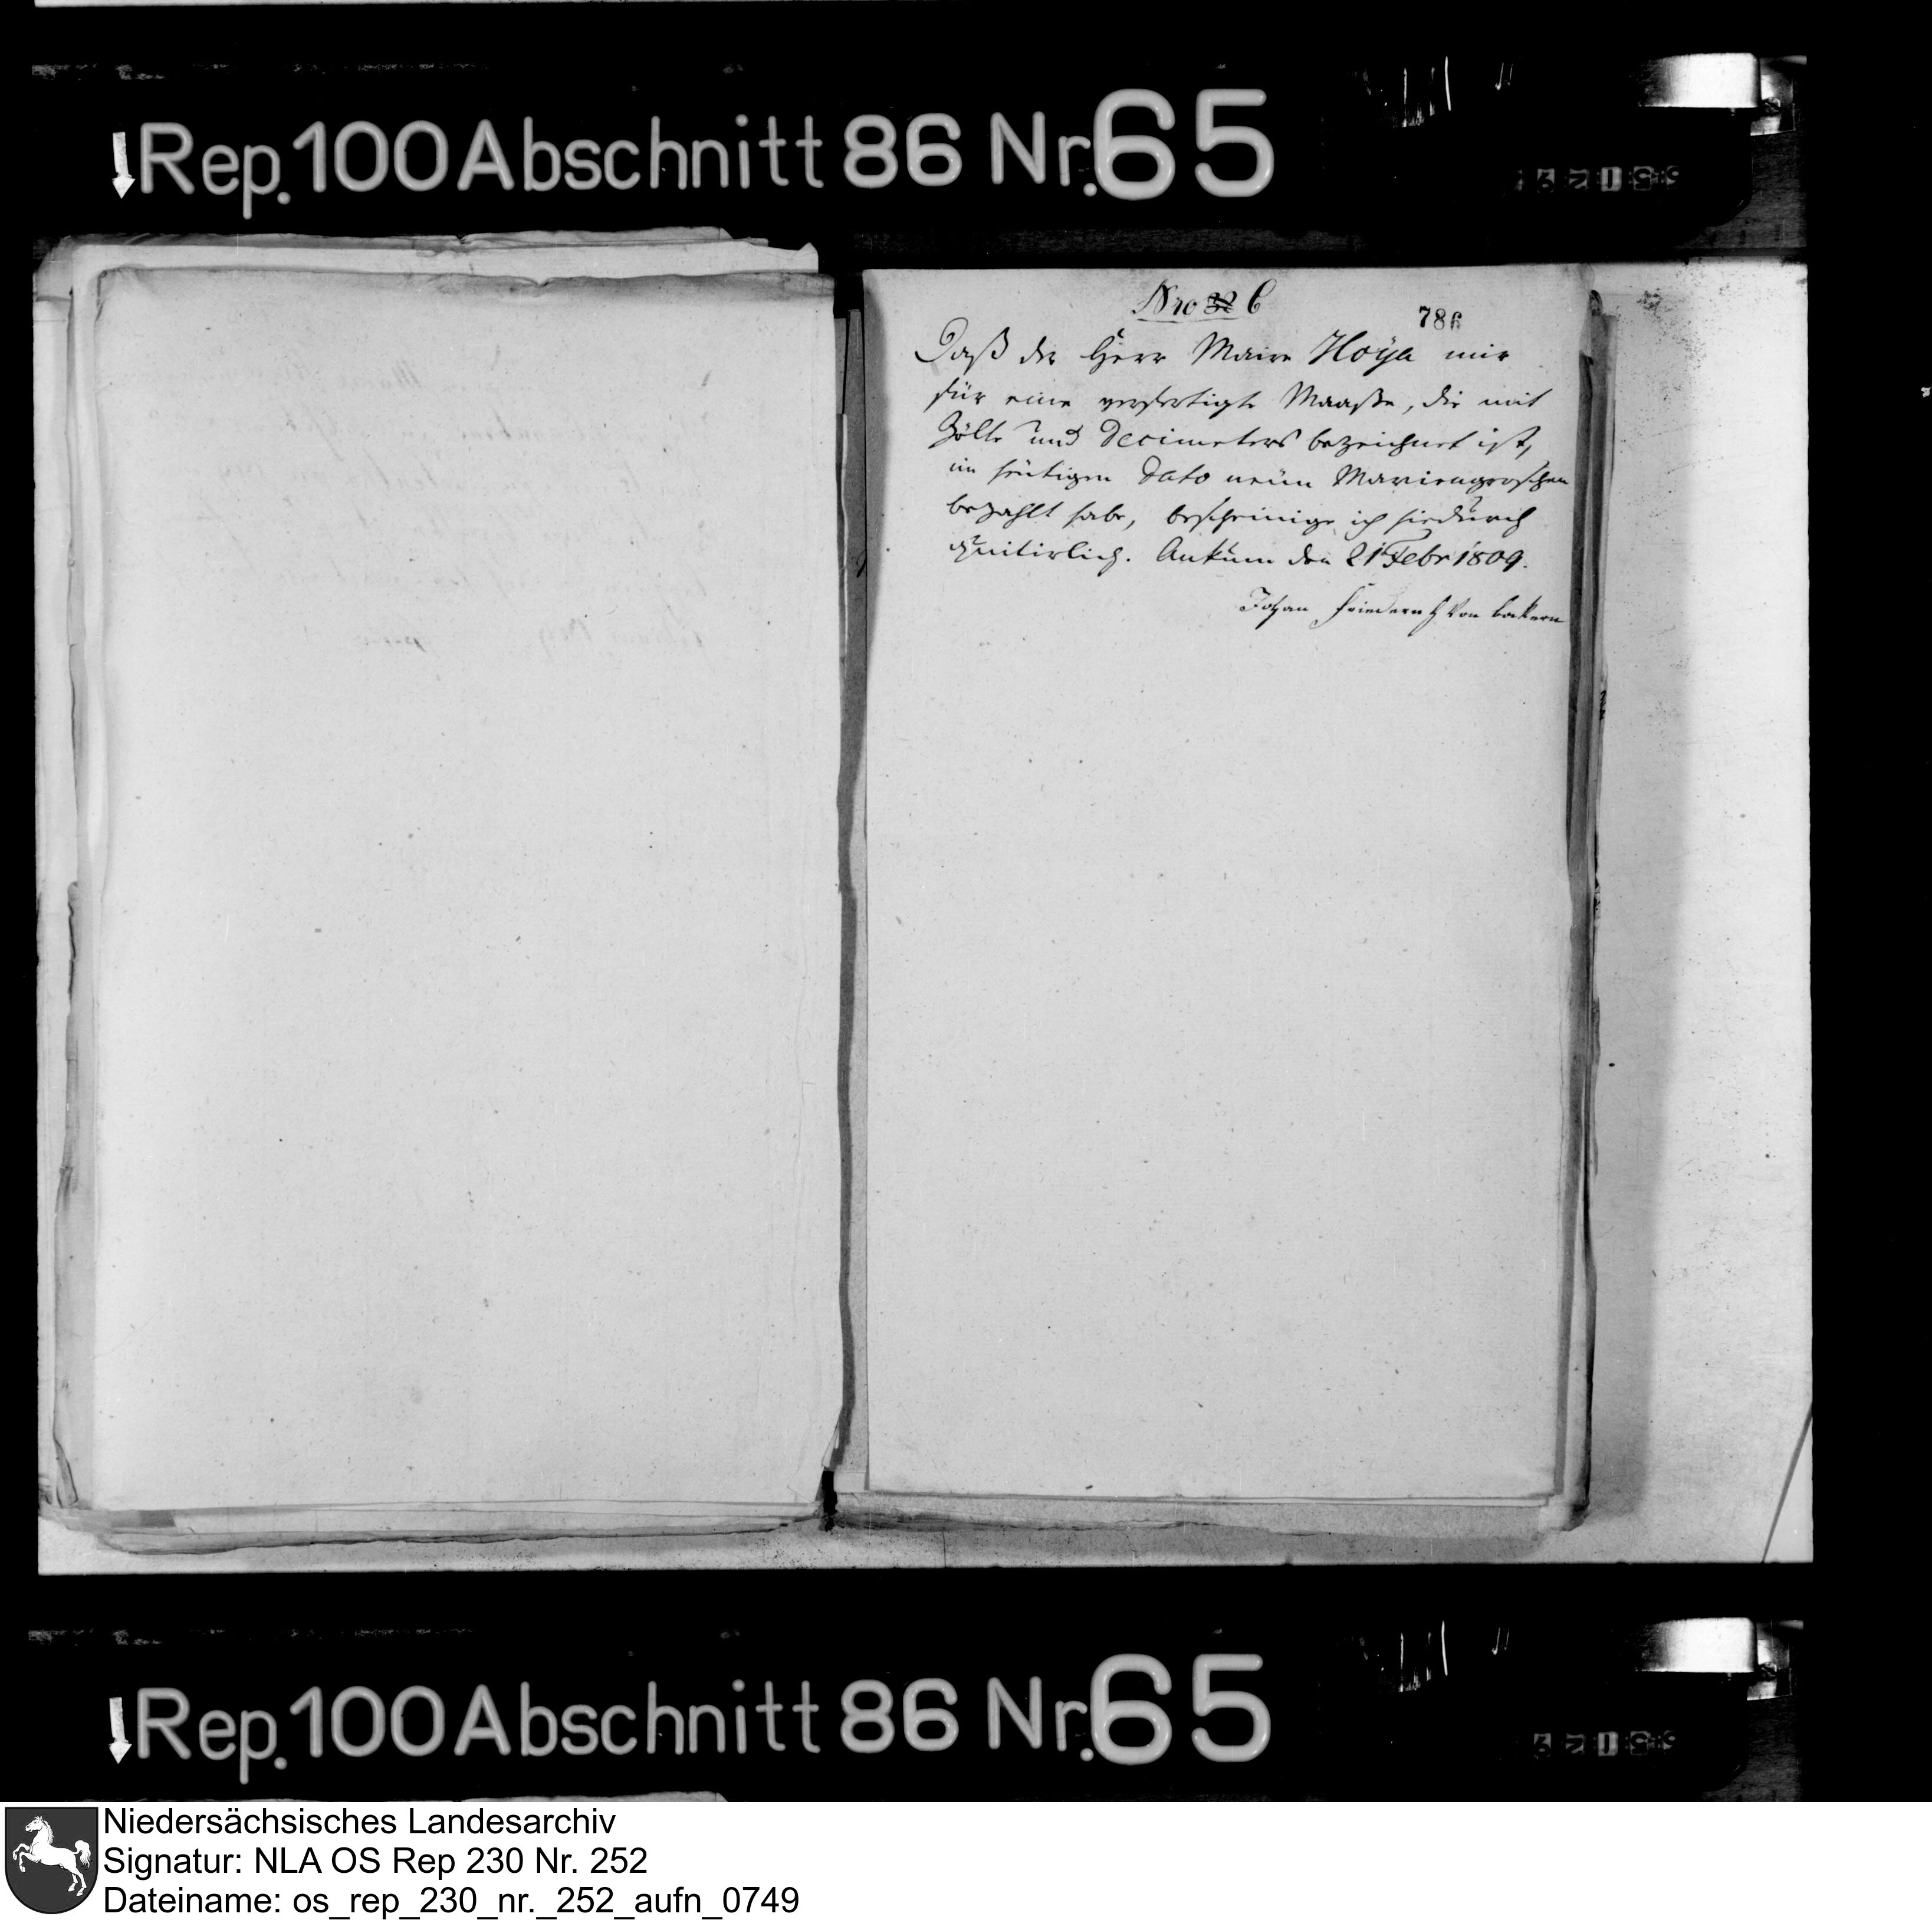 Rep. 100 Abschnitt 86 Nr. 65
Nro 32 6
786
Daß der Herr Maire Hoÿa mir
für eine verfertigte Maaße, die mit
Zölle und Decimeters bezeichnet ist,
im heutigen Dato neün Mariengroschen
bezahlt habe, bescheinige ich hiedürch
quitirlich. Ankum den 21 Febr 1809.
Johan Friederich von
Rep. 100 Abschnitt 86 Nr. 65
Niedersächsisches Landesarchiv
Signatur: NLA OS Rep 230 Nr. 252
Dateiname: os_rep_230_nr._252_aufn_0749